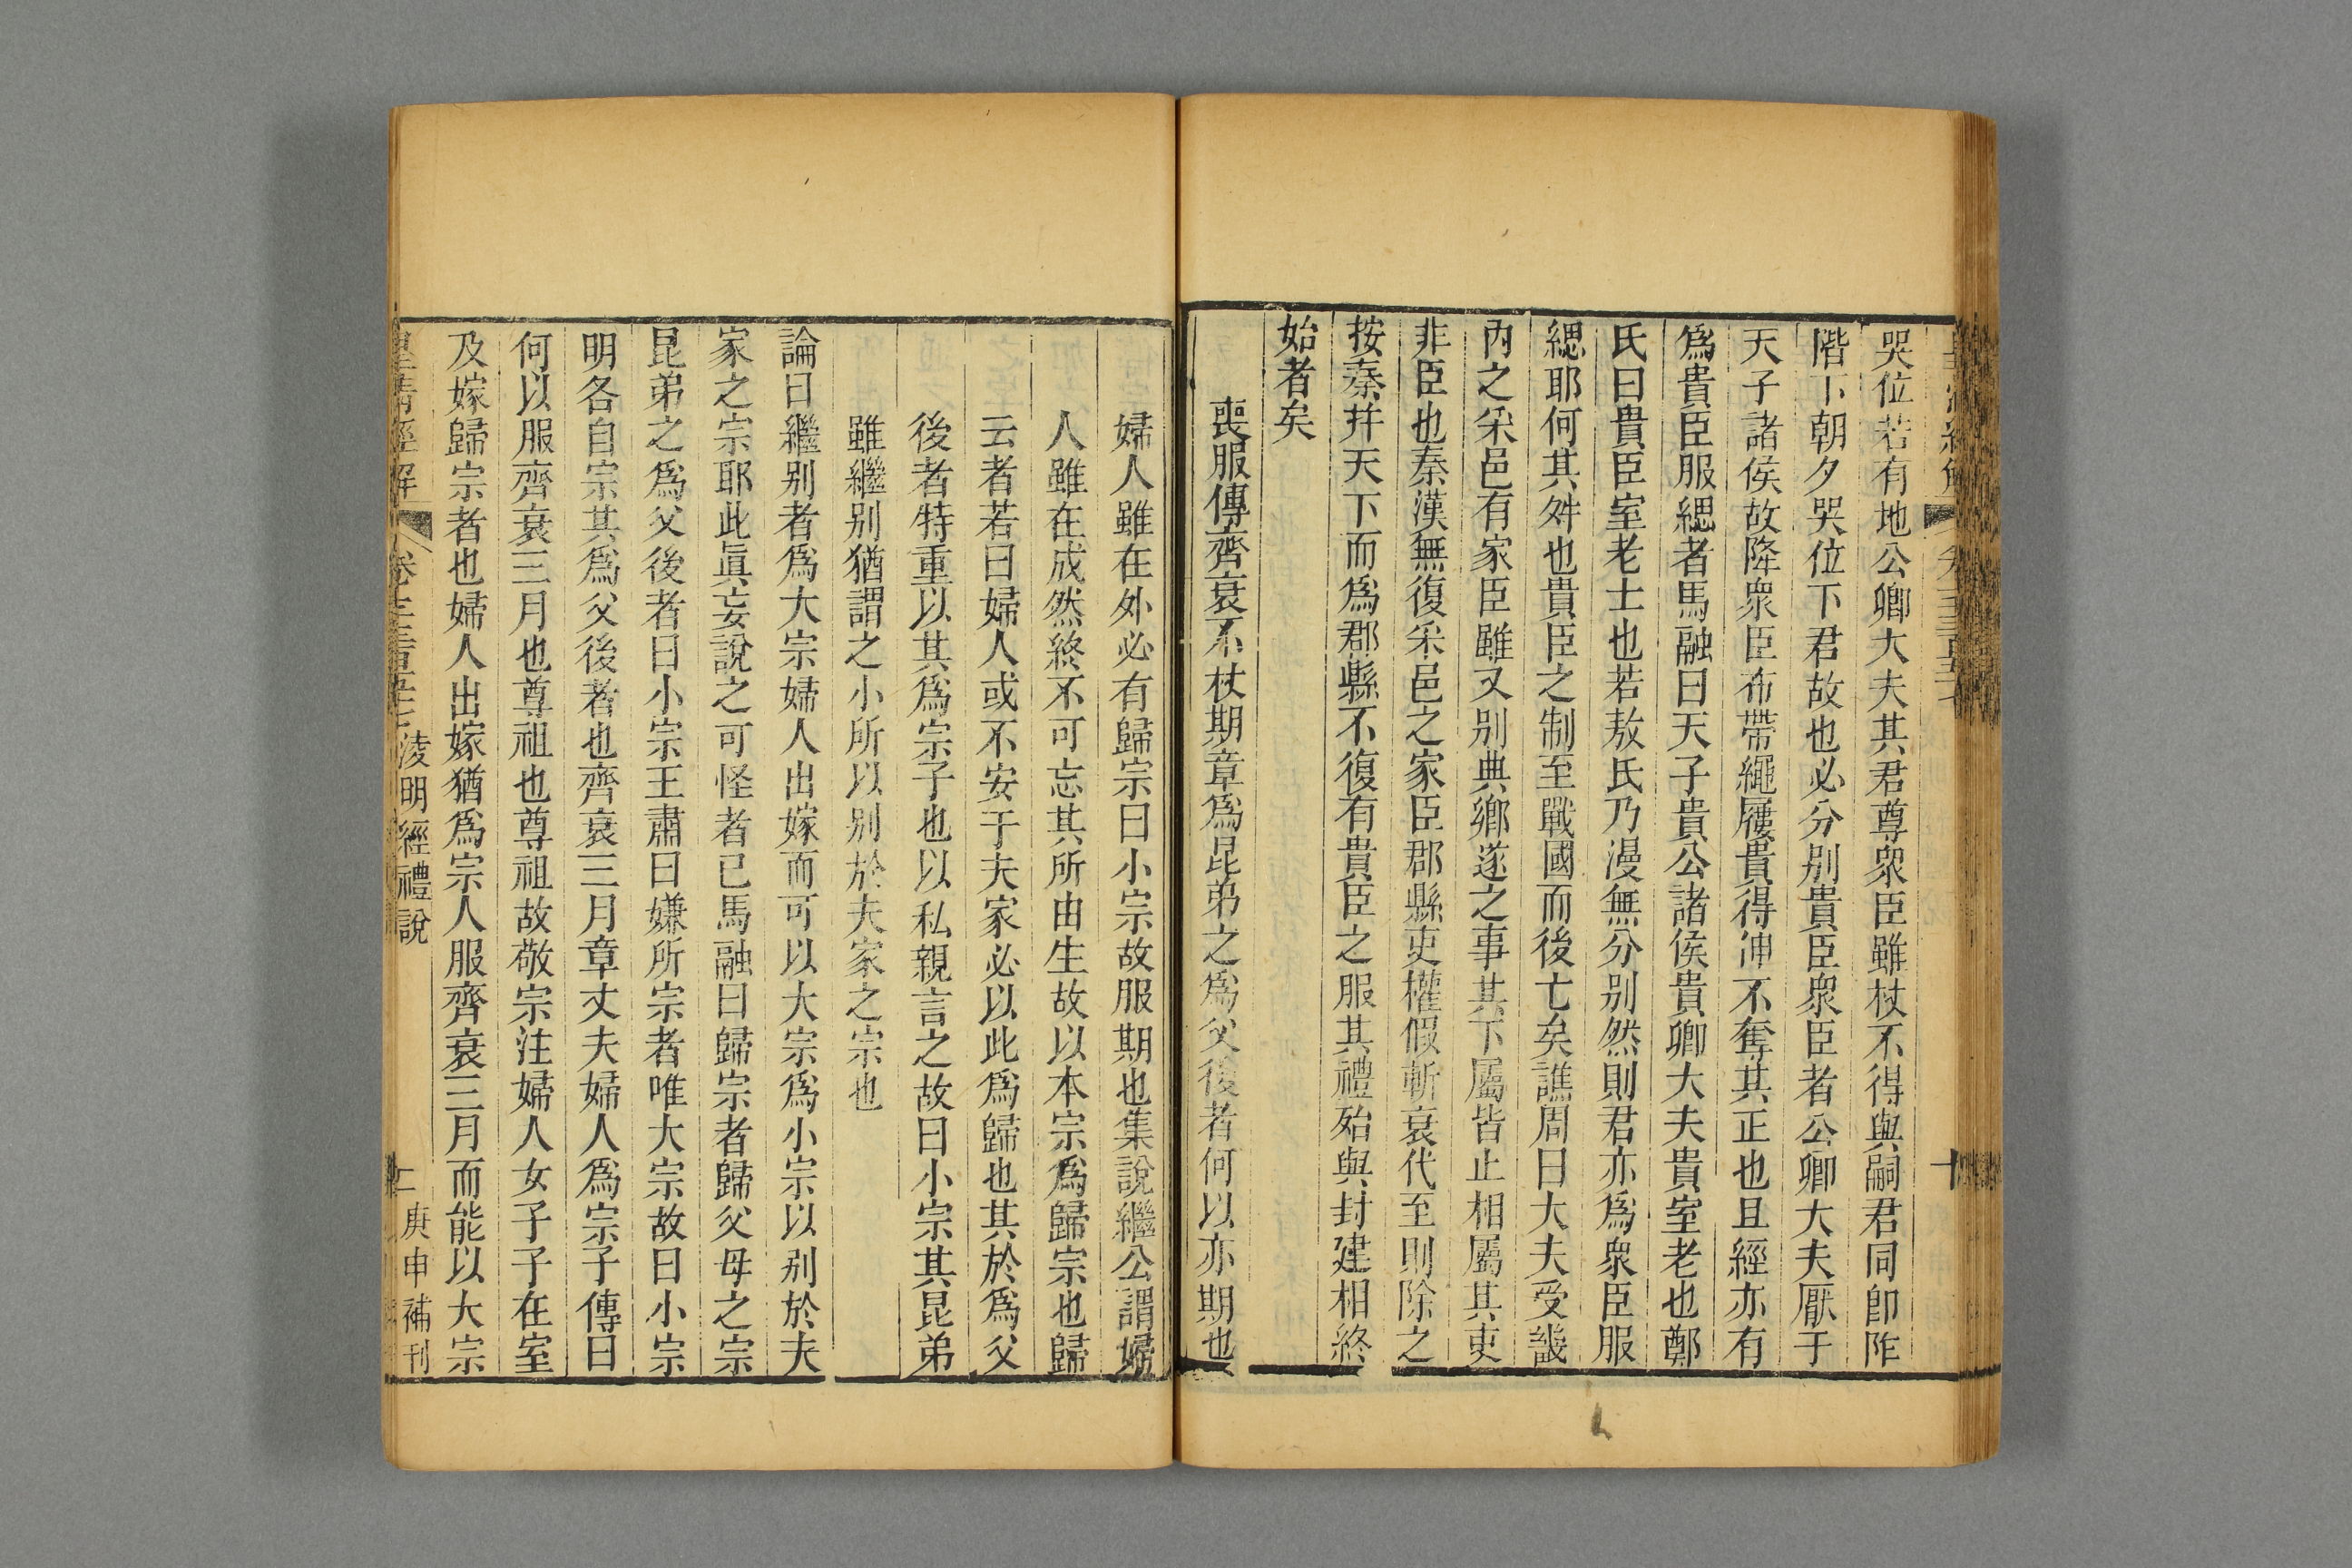 哭位若有地公卿大夫其君尊衆臣雖杖不得與嗣君同卽阼
階下朝夕哭位下君故也必分别貴臣衆臣者公卿大夫厭于
天子諸侯故降衆臣布帶繩屨貴得伸不奪其正也且經亦有
爲貴臣服緦者馬融曰天子貴公諸侯貴卿大夫貴室老也鄭
氏曰貴臣室老士也若敖氏乃漫無分别然則君亦爲衆臣服
緦耶何其舛也貴臣之制至戰國而後亡矣譙周曰大夫受畿
內之采邑有家臣雖又别典鄉遂之事其下屬皆止相屬其吏
非臣也秦漢無復采邑之家臣郡縣吏權假斬衰代至則除之
按秦并天下而爲郡縣不復有貴臣之服其禮殆與封建相終
始者矣
喪服傳齊衰不杖期章爲昆弟之爲父後者何以亦期也
婦人雖在外必有歸宗曰小宗故服期也集說繼公謂婦
人雖在成然終不可忘其所由生故以本宗爲歸宗也歸
云者若曰婦人或不安于夫家必以此爲歸也其於爲父
後者特重以其爲宗子也以私親言之故曰小宗其昆弟
雖繼别猶謂之小所以别於夫家之宗也
論曰繼别者爲大宗婦人出嫁而可以大宗爲小宗以别於夫
家之宗耶此眞妄說之可怪者已馬融曰歸宗者歸父母之宗
昆弟之爲父後者曰小宗王肅曰嫌所宗者唯大宗故曰小宗
明各自宗其爲父後者也齊衰三月章丈夫婦人爲宗子傳曰
何以服齊衰三月也尊祖也尊祖故敬宗注婦人女子子在室
及嫁歸宗者也婦人出嫁猶爲宗人服齊衰三月而能以大宗
皇清經解
淩明經禮說
庚申補刊